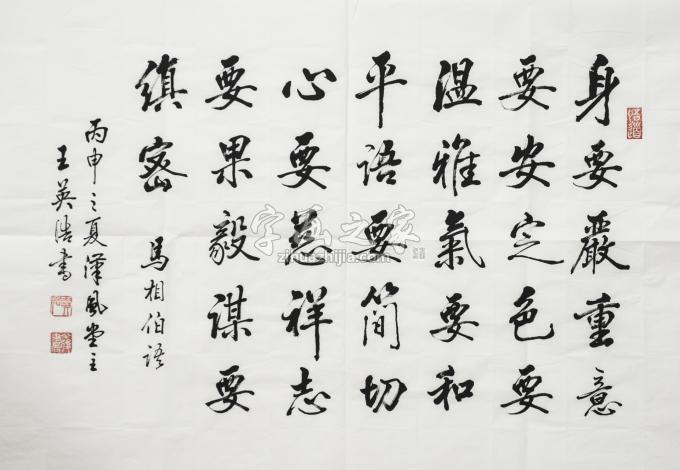 身要嚴重意
要安定色要
溫雅氣要和
平語要簡切
心要慈祥志
要果毅謀要
縝密
馬相伯語
丙申之夏漢風堂主
王英浩書
字画之家
zihuazhijia.com